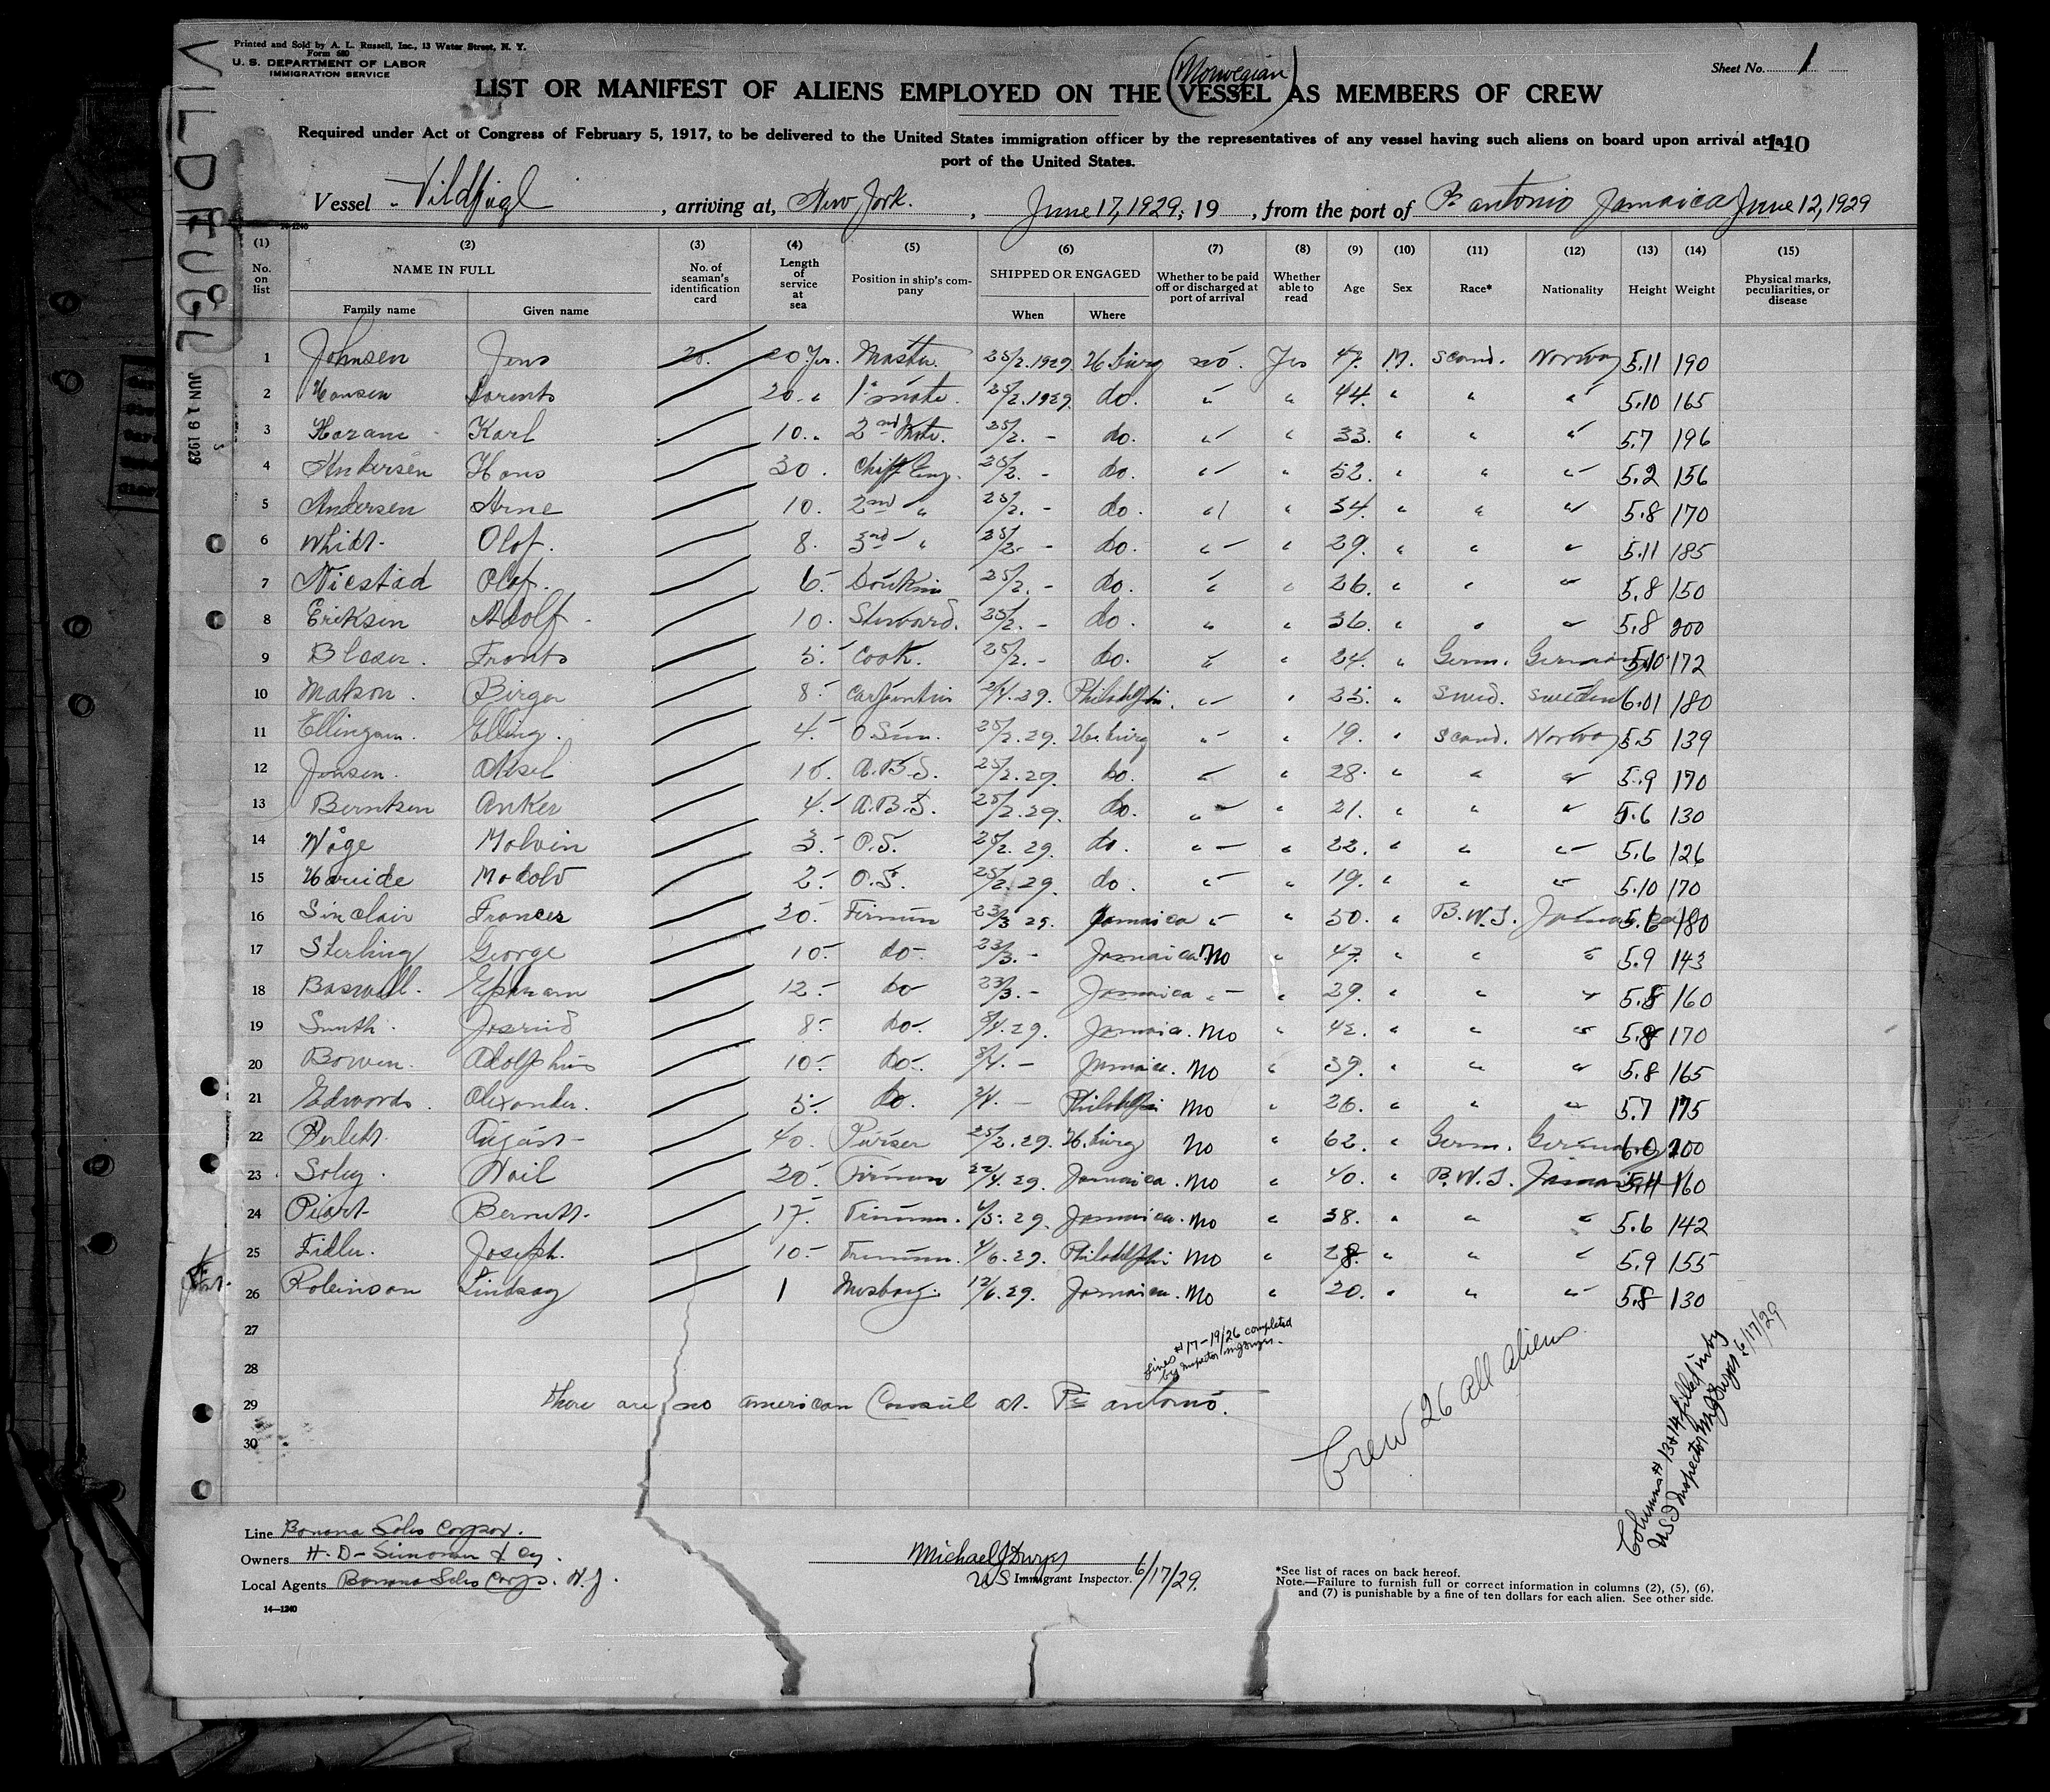 Printed and Sold by A. L. Russell, Inc., 13 Water Street, N. Y.
Form 680
U. S. DEPARTMENT OF LABOR
IMMIGRATION SERVICE
Sheet No. 1
(Norwegian)
LIST OR MANIFEST OF ALIENS EMPLOYED ON THE VESSEL AS MEMBERS OF CREW
Required under Act of Congress of February 5, 1917, to be delivered to the United States immigration officer by the representatives of any vessel having such aliens on board upon arrival at a
port of the United States.
110
VILDFUGL JUN 19 1929
Vessel Vildfugl, arriving at, New York, June 17, 1929, 19 , from the port of Pt antonio Jamaica June 12, 1929
14-1240
(1) (2) (3) (4) (5) (6) (7) (8) (9) (10) (11) (12) (13) (14) (15)
No. on list NAME IN FULL No. of seaman's identification card Length of service at sea Position in ship's company SHIPPED OR ENGAGED Whether to be paid off or discharged at port of arrival Whether able to read Age Sex Race* Nationality Height Weight Physical marks, peculiarities, or disease
Family name Given name When Where
1 Johnsen Jens 20 Yrs. Master 25/2.1929 Hburg no. Yes 47. M. Scand. Norway 5.11 190
2 Hansen Lorents 20 " 1st mate. 25/2.1929 do. " " 44. " " " 5.10 165
3 Karl 10 " 2nd Mate. 25/2. - do. " " 33. " " " 5.7 196
4 Andersen Hans 30. Chief Eng. 25/2. - do. " " 52. " " " 5.2 156
5 Andersen Arne 10. 2nd " 25/2. - do. " " 34. " " " 5.8 170
6 Olof. 8. 3rd " 25/2. - do. " " 29. " " " 5.11 185
7 Niestad Olof. 6- 25/2. - do. " " 26. " " " 5.8 150
8 Eriksen Adolf 10. Steward. 25/2. - do. " " 36. " " " 5.8 200
9 Blaser. Frants 5- Cook. 25/2. - do. " " 24. " Germ. Germany 5.10 172
10 Matson. Birger 8- Carpenter 2/4.29. Philadelphi. " " 25. " Swed. Sweden 6.01 180
11 Elling. 4- 25/2.29. Hburg " " 19. " Scand. Norway 5.5 139
12 Jensen. Aksel 10. A.B.S. 25/2.29. do. " " 28. " " " 5.9 170
13 Berntsen Anker 4.- A.B.S. 25/2.29. do. " " 21. " " " 5.6 130
14 Wåge Malvin 3.- O.S. 25/2.29. do. " " 22. " " " 5.6 126
15 Modolv 2.- O.S. 25/2.29. do. " " 19. " " " 5.10 170
16 Sinclair Frances 20- Firman 23/3 29. Jamaica " " 50. " B.W.I. Jamaica 5.6 180
17 Sterling George 10- do- 23/3. - Jamaica No " 47. " " " 5.9 143
18 Baswell. Ephraam 12- do 23/3. - Jamaica " " 29. " " " 5.8 160
19 Smith. 8- do- 8/4.29. Jamaica. No " 42. " " " 5.8 170
20 Bowen. Adolphus 10- do- 8/4. - Jamaica. No " 39. " " " 5.8 165
21 Edwards. Alexander. 5- do. 2/4. - Philadelphi No " 26. " " " 5.7 175
22 40. Purser 25/2.29. Hburg No " 62. " Germ. Germany 6.0 200
23 Nail 20- Firman 22/4.29. Jamaica. No " 40. " B.W.I. Jamaica 5.11 160
24 17- Trimmer. 29. Jamaica. No " 38. " " " 5.6 142
25 Fidler. Joseph. 10- Trimmer. 4/6.29. Philadelphi No " 28. " " " 5.9 155
26 Robinson Lindsay 1 Messboy. 12/6.29. Jamaica. No " 20. " " " 5.8 130
27
28
29
30
Lines # 17-19/26 completed
by Inspector MJ Dwyer.
There are no american Consul at Pt antonio.
Crew 26 all aliens
Columns # 13 & 14 filled in by
US I Inspector MJ Dwyer 6/17/29
Line Banana Sales Corpor.
Owners H. D.
Local Agents Banana Sales Corp. N.J.
14—1240
Michael J Dwyer
US Immigrant Inspector. 6/17/29.
*See list of races on back hereof.
Note.—Failure to furnish full or correct information in columns (2), (5), (6),
and (7) is punishable by a fine of ten dollars for each alien. See other side.